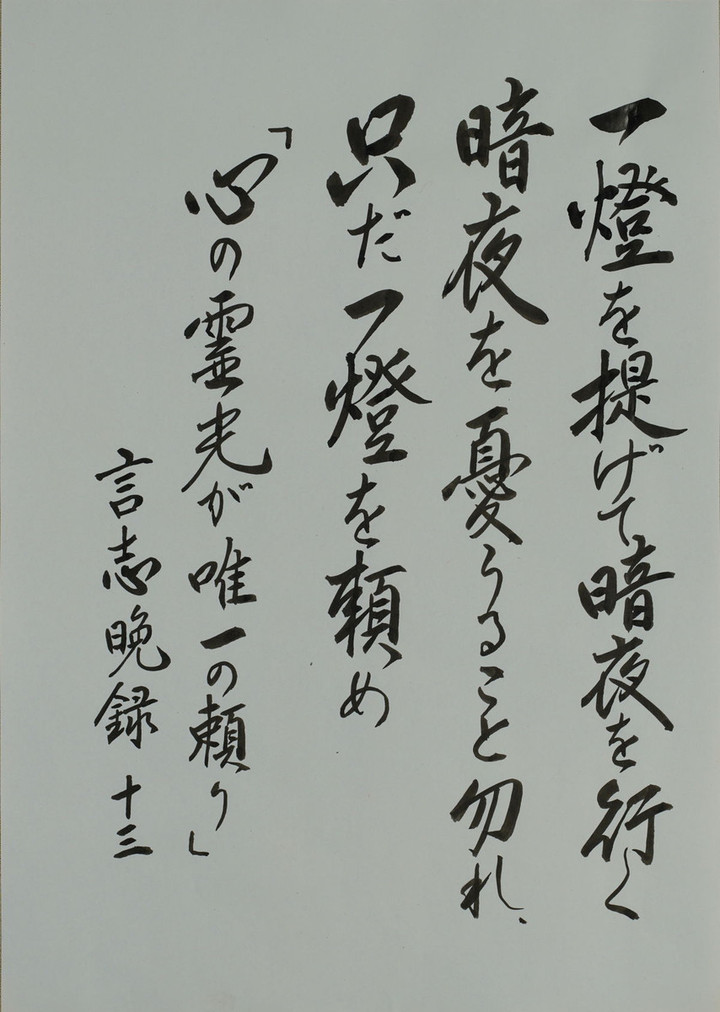 一燈を提げて暗夜を行く
暗夜を憂うること勿れ、
只だ一燈を頼め
「心の霊光が唯一の頼り」
言志晩録 十三